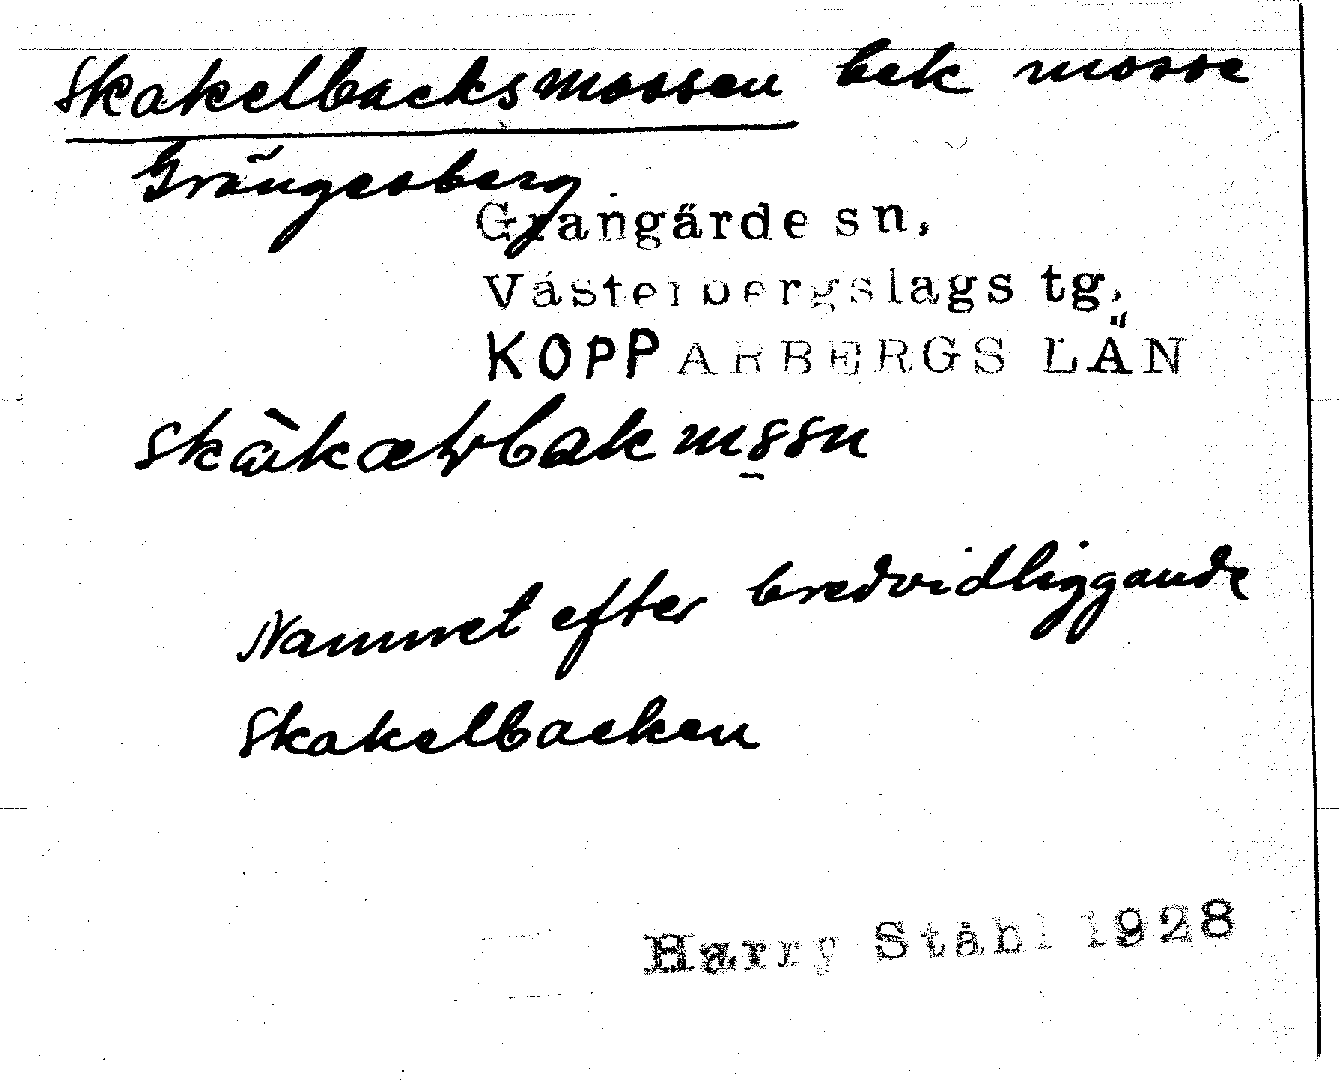 Skakelbacksmossen bek mosse
Grängesberg
Grangärde sn,
Västerbergslags tg.
KOPPARBERGS LÄN
Namnet efter bredvidliggande
Skakelbacken
Harry Ståhl 1928